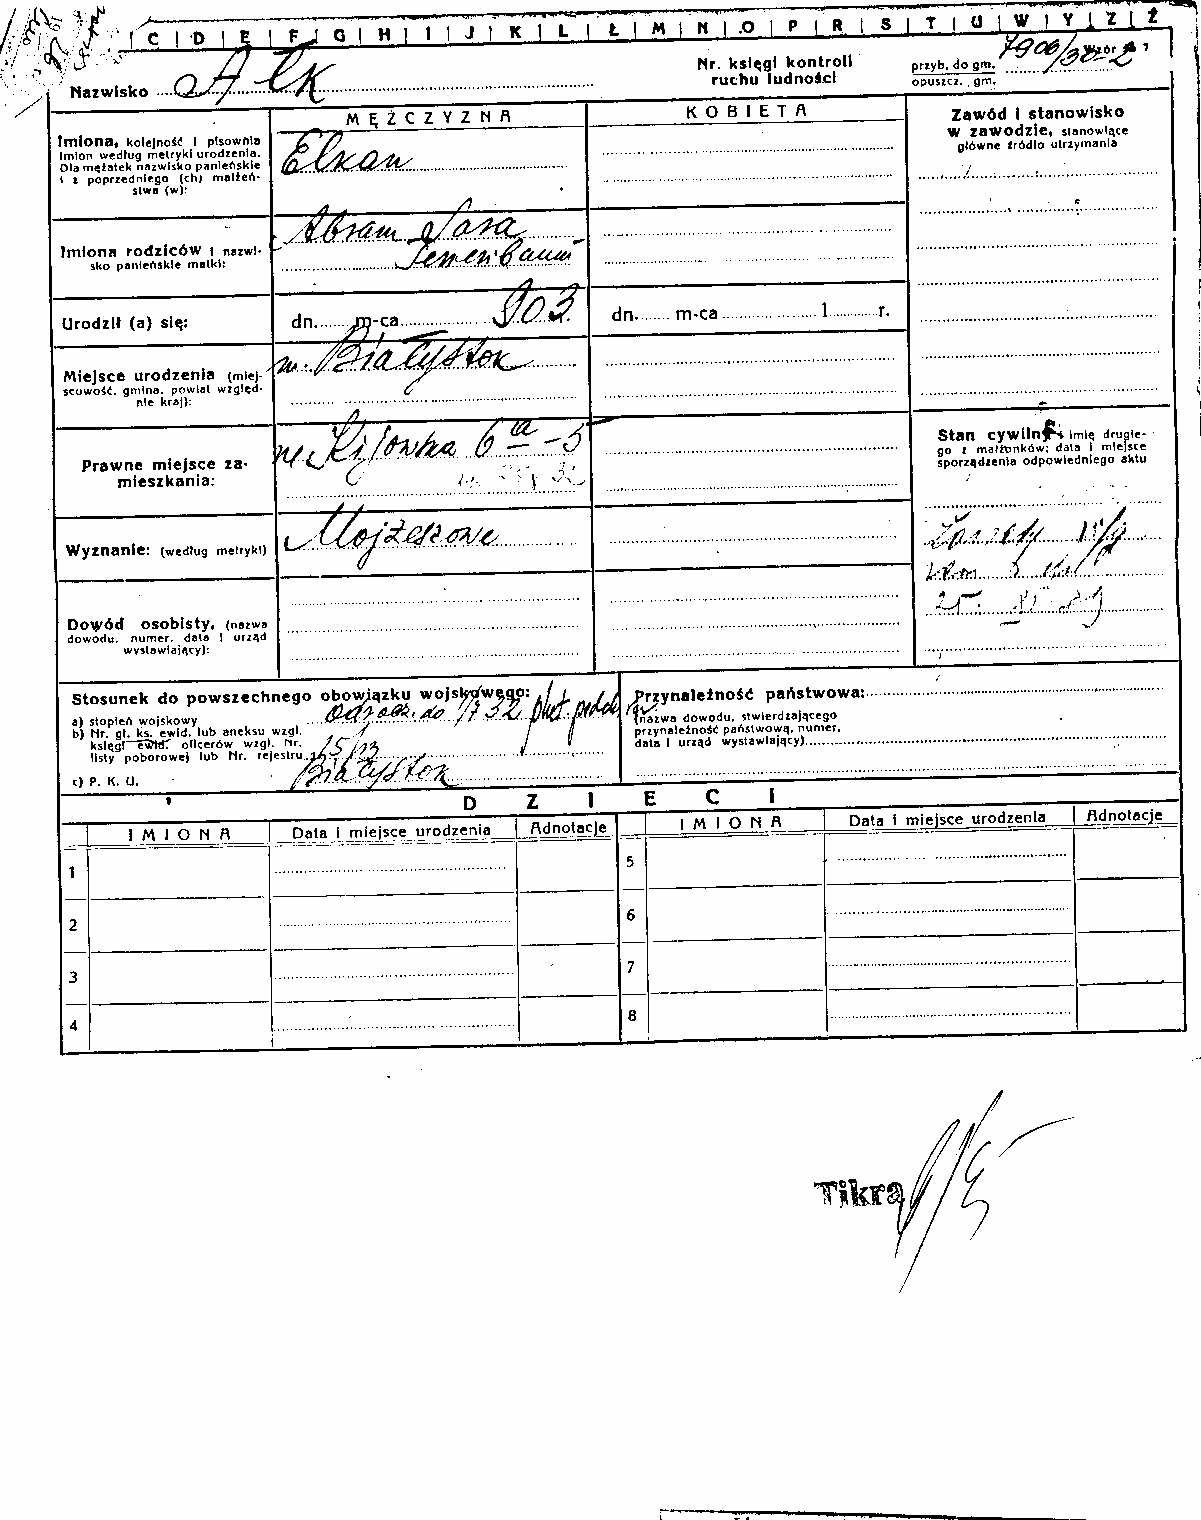 C | D | E | F | G | H | I | J | K | L | Ł | M | N | O | P | R | S | T | U | W | Y | Z | Ż
Nazwisko Ałk
Nr. księgi kontroli
ruchu ludności
przyb. do gm.
opuszcz. gm.
Wzór № 7
Imiona, kolejność i pisownia
imion według metryki urodzenia.
Dla mężatek nazwisko panieńskie
i z poprzedniego (ch) małżeń-
stwa (w):
MĘŻCZYZNA
Elkan
KOBIETA
Zawód i stanowisko
w zawodzie, stanowiące
główne źródło utrzymania
Imiona rodziców i nazwi-
sko panieńskie matki:
Abram Sara
Urodził (a) się:
dn. m-ca 903
dn. m-ca 1 r.
Miejsce urodzenia (miej-
scowość, gmina, powiat względ-
nie kraj):
m. Białystok
Prawne miejsce za-
mieszkania:
Kijowska 6a - 5
Stan cywilny: imię drugie-
go z małżonków; data i miejsce
sporządzenia odpowiedniego aktu
Wyznanie: (według metryki)
Mojżeszowe
Dowód osobisty, (nazwa
dowodu, numer, data i urząd
wystawiający):
Stosunek do powszechnego obowiązku wojskowego:
a) stopień wojskowy
odrocz. do 1/I 32
b) Nr. gł. ks. ewid. lub aneksu wzgl.
księgi ewid. oficerów wzgl. Nr.
listy poborowej lub Nr. rejestru
c) P. K. U.
Białystok
Przynależność państwowa:
(nazwa dowodu, stwierdzającego
przynależność państwową, numer,
data i urząd wystawiający)
DZIECI
IMIONA | Data i miejsce urodzenia | Adnotacje | IMIONA | Data i miejsce urodzenia | Adnotacje
1 5
2 6
3 7
4 8
Tikra